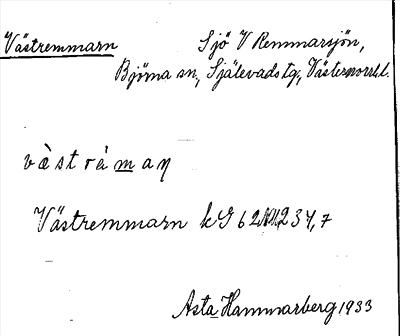 Västremmarn Sjö V Remmarsjön,
Björna sn, Själevads tg, Västernorrl. l.
västràmaŋ
Västremmarn kG 62 234,7
Asta Hammarberg 1933